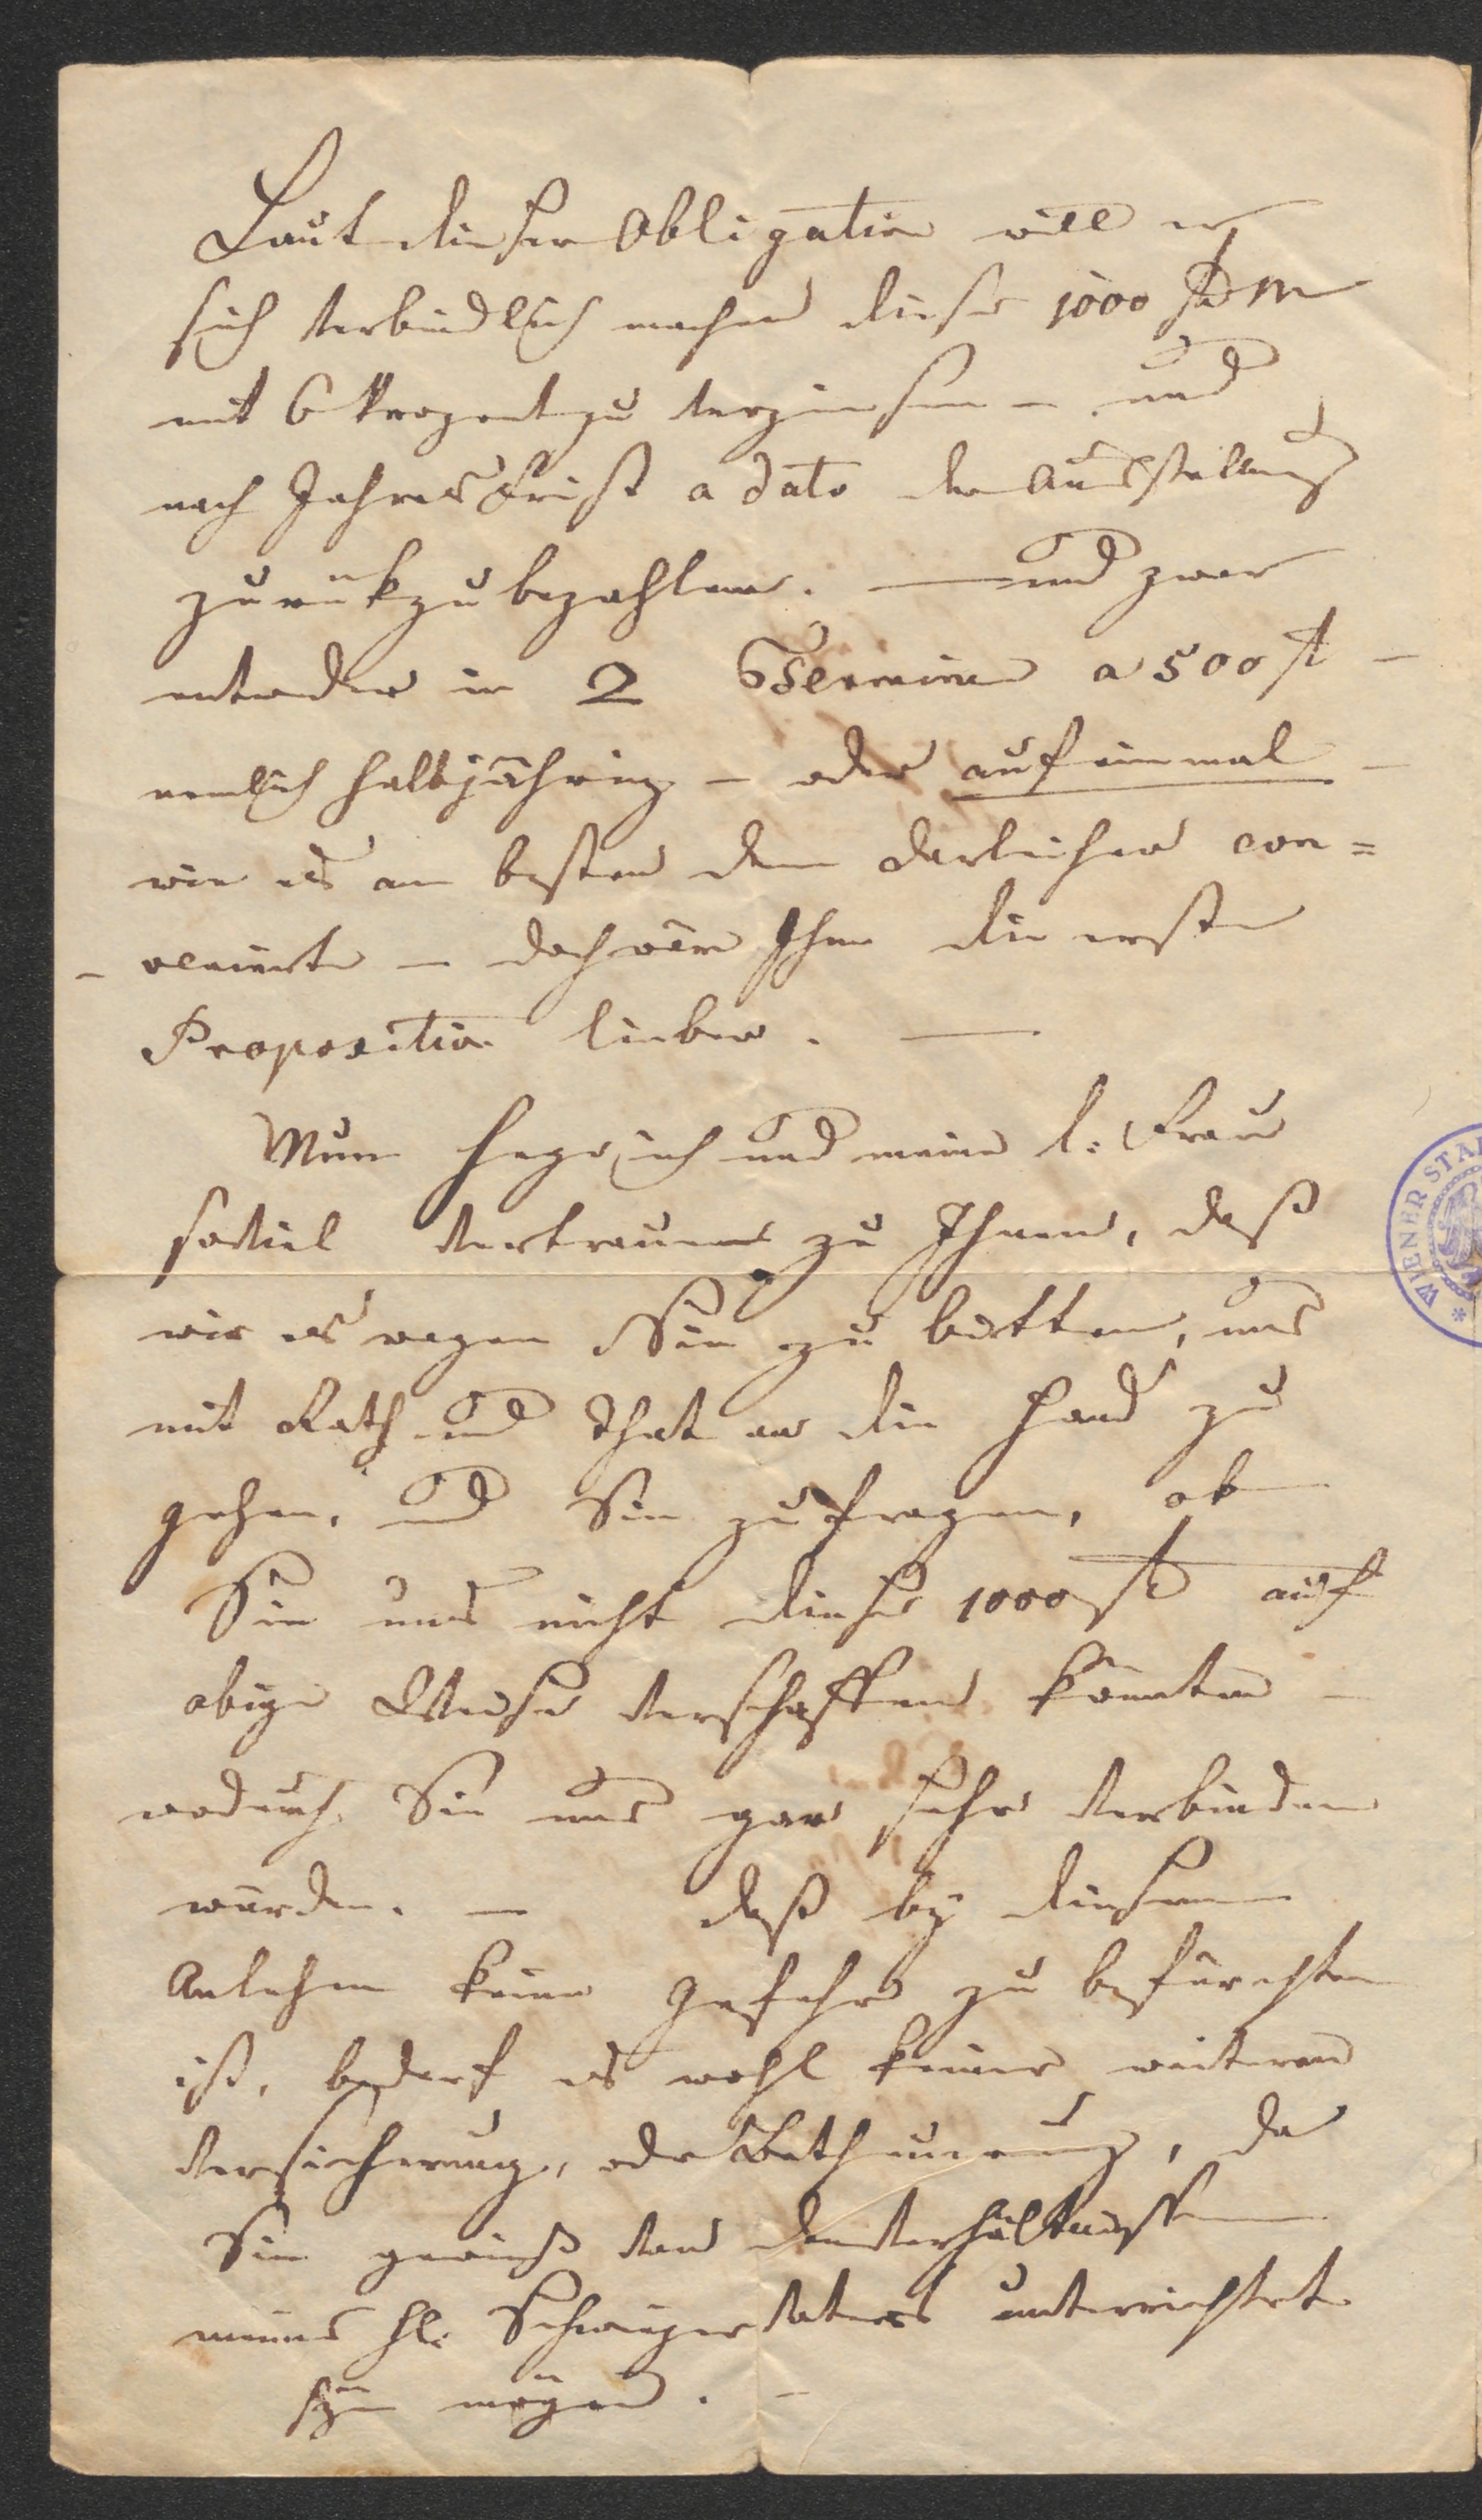 Laut dieser Obligation will er
sich verbindlich machen diese 1000 fl CM
mit 6 Prozent zu verzinsen – und
nach Jahres Frist a dato der Ausstellung
zurükzubezahlen. — und zwar
entweder in 2 Termine a 500 fl –
nemlich halbjährig – oder auf einmal –
wie es am besten dem Darleiher con=
– venierte – doch wär Ihm die erste
Proposition lieber. —
Nun hege ich und meine l: Frau
soviel Vertrauen zu Ihnen, daß
wir es wagen Sie zu bitten, uns
mit Rath und That an die Hand zu
gehen, und Sie zu fragen, ob
Sie uns nicht diese 1000 fl auf
obige Weise verschaffen könnten –
wodurch Sie uns gar sehr verbinden
würden. – daß bey diesem
Anlehen keine Gefahr zu befürchten
ist, bedarf es wohl keiner weiteren
Versicherung, oder Betheuerung, da
Sie gewiß von den Verhältnissen
meines H: Schwiegervaters unterrichtet
seyn mögen. –
WIENER STA